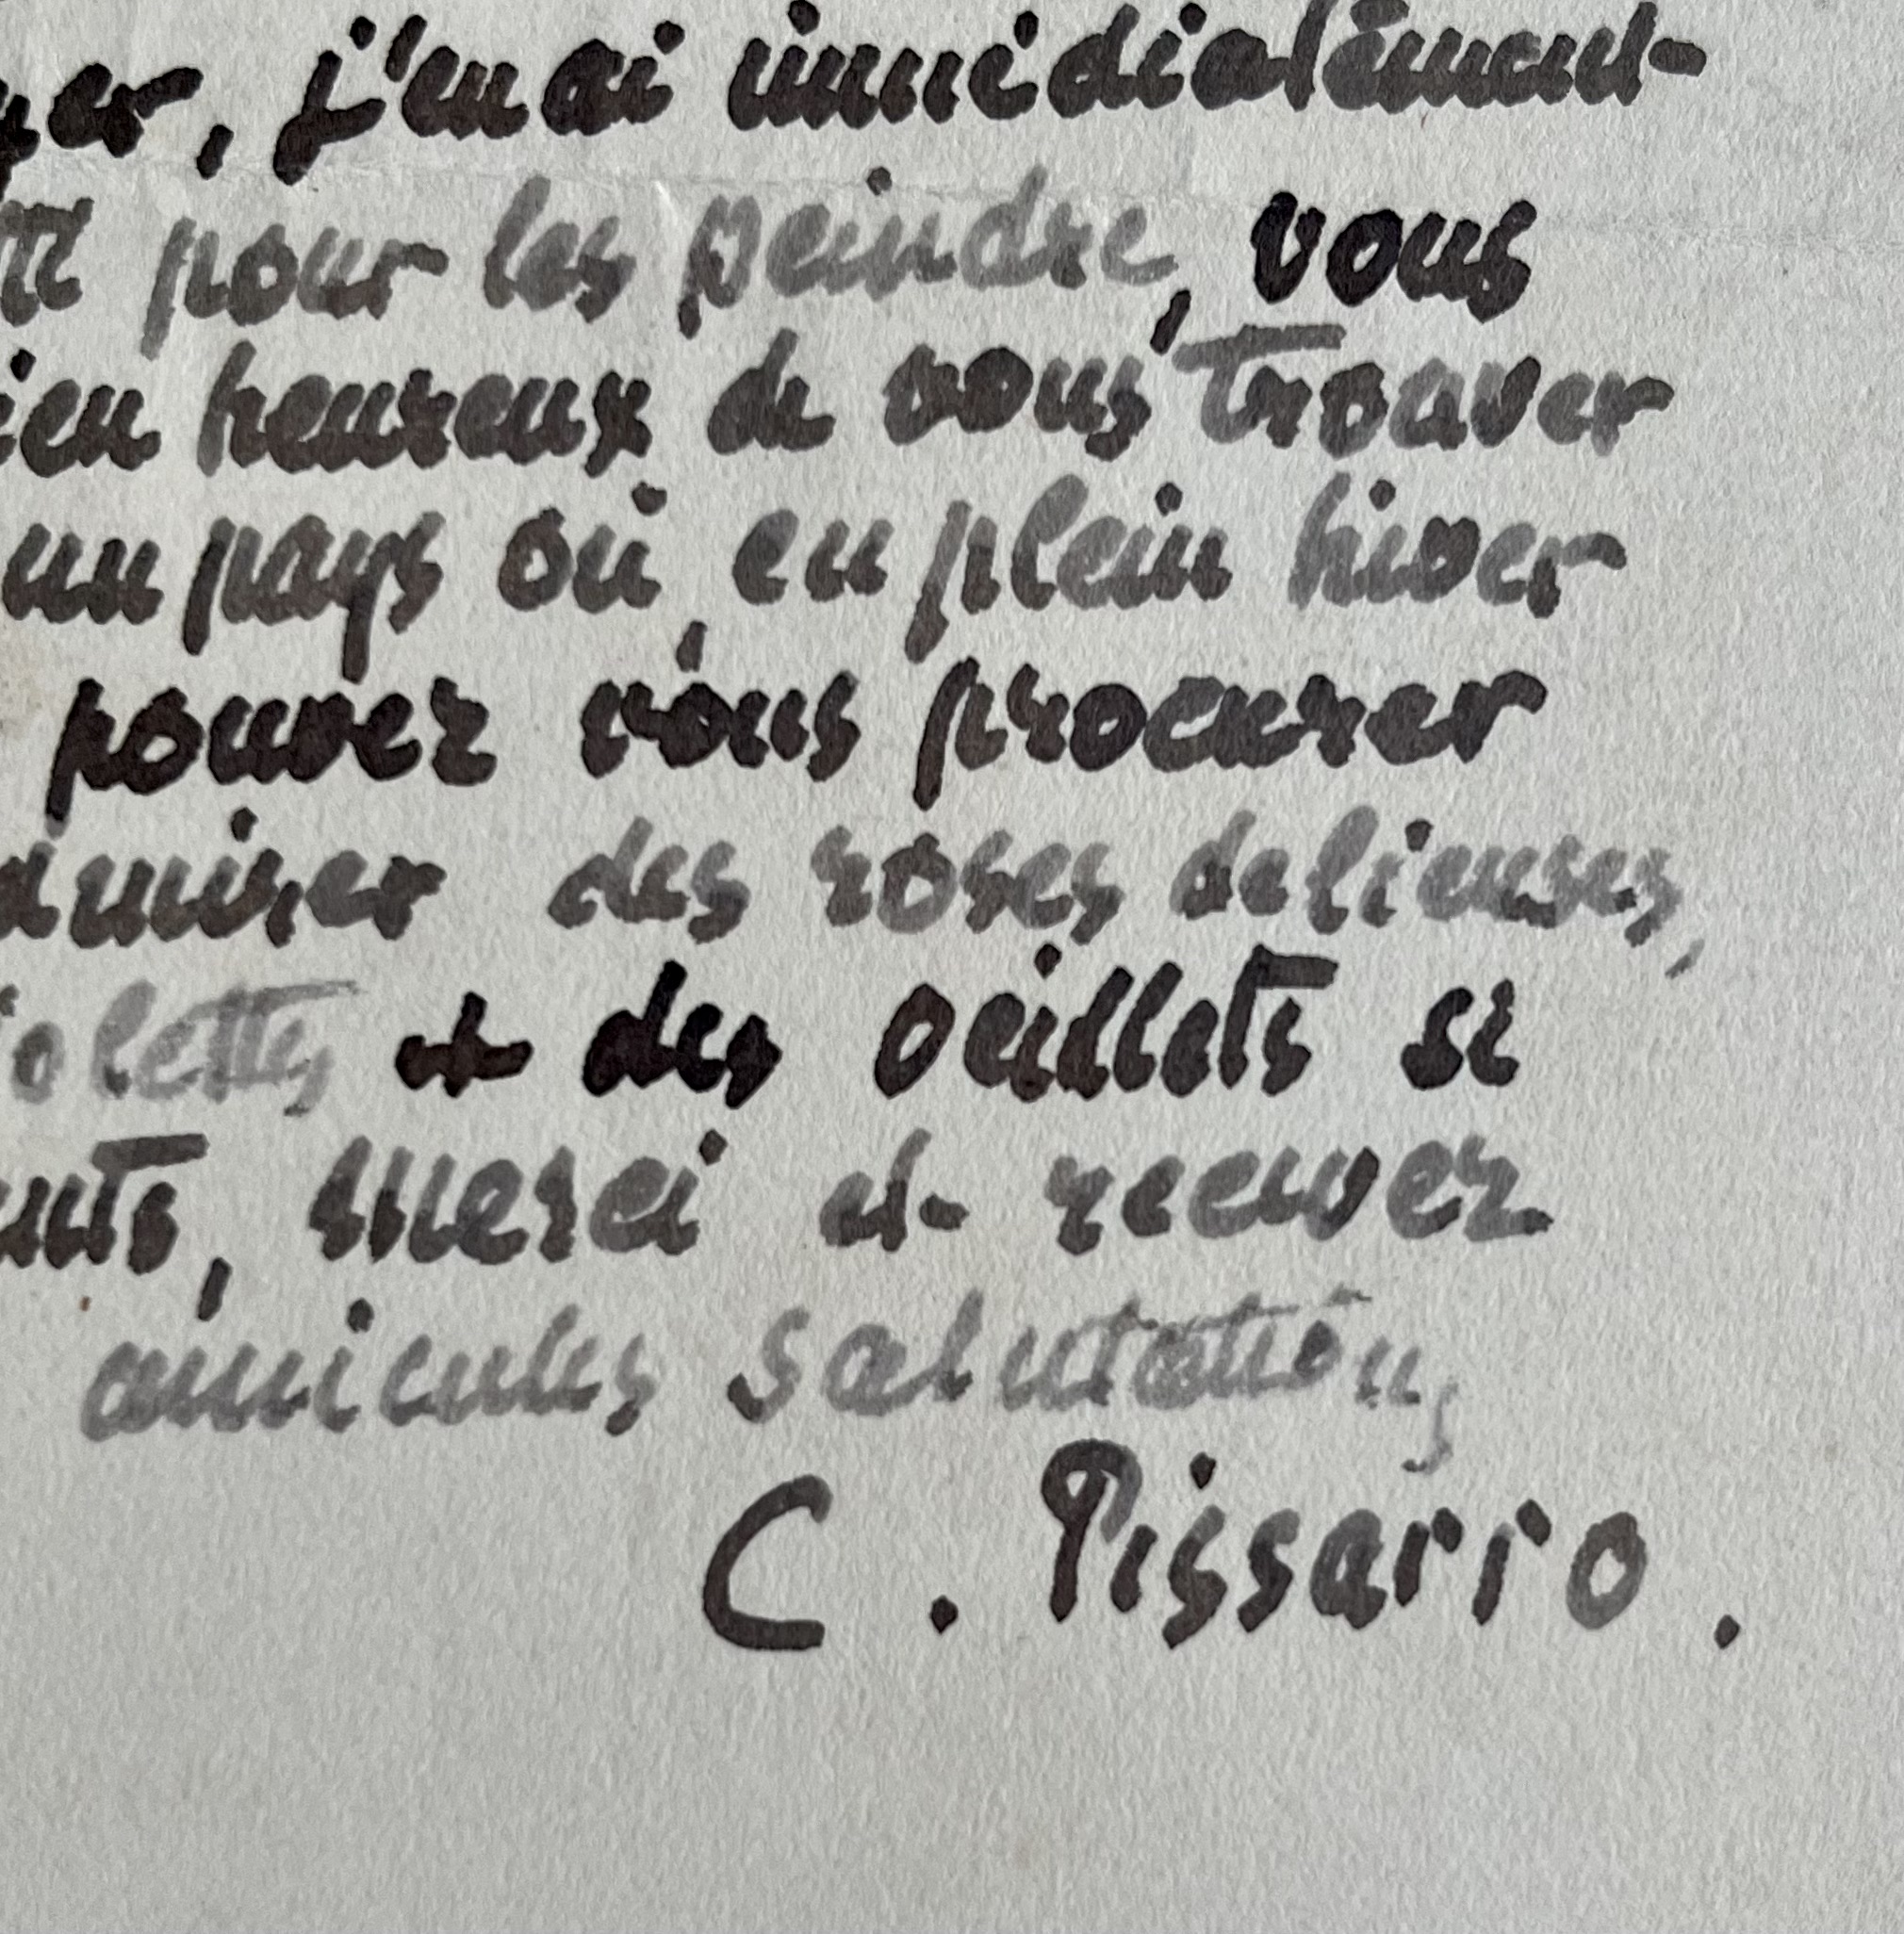 , j'en ai immédiatement
pour les peindre, vous
heureux de vous trouver
un pays où, en plein hiver
pouvez vous procurer
des roses delieuses,
et des oeillets si
, merci et recevez
amicales salutations
C. Pissarro.